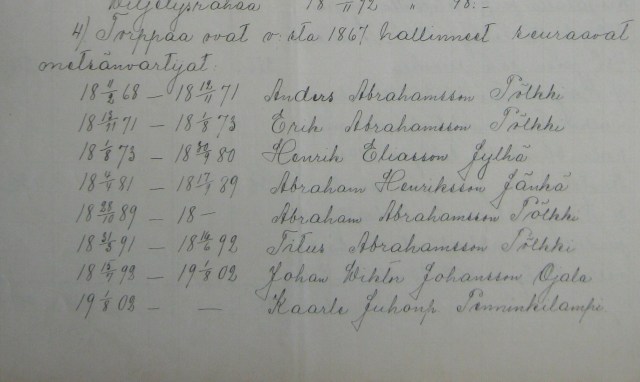 Viljelysrahaa 18 11/11 72 " 48:-
4) Torppaa ovat v:sta 1867 hallinneet seuraavat
metsänvartijat:
18 11/2 68 — 18 12/11 71 Anders Abrahamsson Pölkki
18 13/11 71 — 18 1/8 73 Erik Abrahamsson Pölkki
18 1/8 73 — 18 30/9 80 Henrik Eliasson Jylkä
18 4/4 81 — 18 17/1 89 Abraham Henriksson Jänkä
18 28/10 89 — 18 — Abraham Abrahamsson Pölkki
18 31/3 91 — 18 14/6 92 Titus Abrahamsson Pölkki
18 15/7 92 — 19 1/8 02 Johan Wiktor Johansson Ojala
19 1/8 02 — — Kaarle Juhonp Penninkilampi